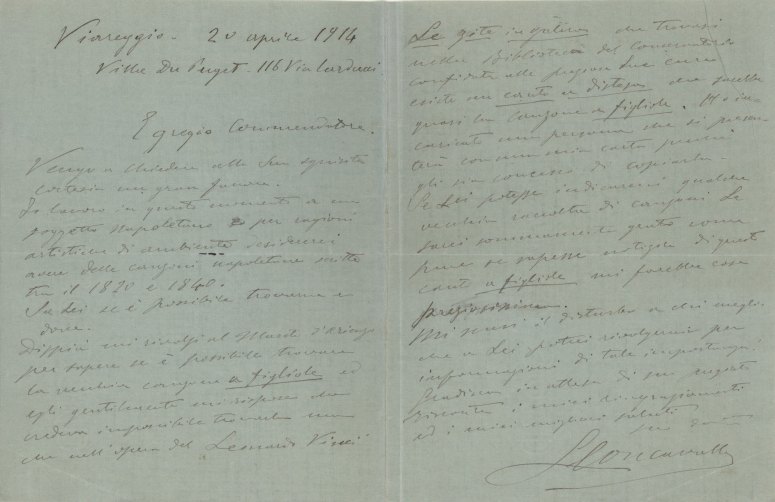 Viareggio - 20 aprile 1914
Villa Du Puget - 116 Via Carducci
Egregio Commendatore.
Vengo a chiedere alla Sua squisita
cortesia un gran favore.
Io lavoro in questo momento a un
soggetto Napoletano e per ragioni
artistiche di ambiente desidererei
avere delle canzoni napoletane scritte
tra il 1820 e 1840.
Sa Lei se è possibile trovarne e
dove.
mi rivolsi al Maestro d'Arienzo
per sapere se è possibile trovare
la vecchia canzone a figliole ed
egli gentilmente mi rispose che
credeva impossibile trovarla meno
che nell'opera del Leonardo Vinci
Le zite in galera che trovasi
nella Biblioteca del Conservatorio
confidata alle cure
esiste un canto a distesa che sarebbe
quasi la canzone a figliole. Ho in=
caricato una persona che si presen=
terà con una mia carta perché
gli sia concesso di copiarla.
Se Lei potesse indicarmi qualche
vecchia raccolta di canzoni Le
sarei sommamente grato come
pure se sapesse notizie di questo
canto a figliole mi farebbe cosa
preziosissima.
Mi scusi il disturbo a chi meglio
che a Lei potrei rivolgermi per
informazioni di tale importanza;
Gradisca in attesa di un pregiato
riscontro i miei ringraziamenti
ed i miei migliori saluti
RLeoncavallo